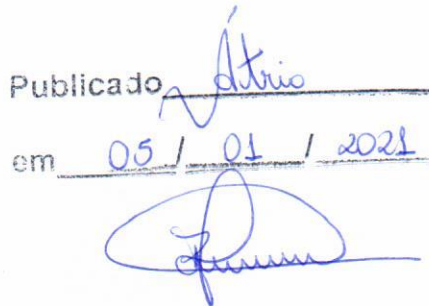 Publicado Átrio
em 05 / 01 / 2021